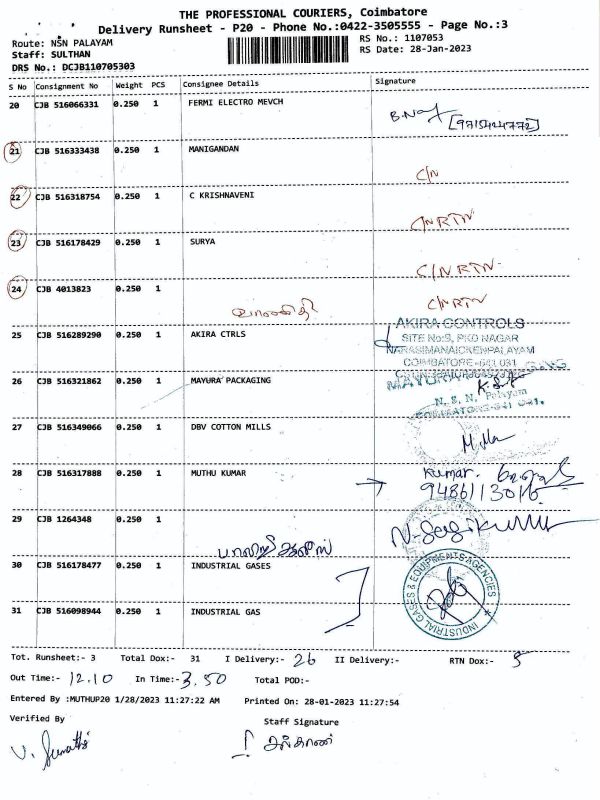 THE PROFESSIONAL COURIERS, Coimbatore
Delivery Runsheet - P20 - Phone No.:0422-3505555 - Page No.:3
Route: NSN PALAYAM
RS No.: 1107053
Staff: SULTHAN
RS Date: 28-Jan-2023
DRS No.: DCJB110705303
S No Consignment No Weight PCS Consignee Details Signature
20 CJB 516066331 0.250 1 FERMI ELECTRO MEVCH
[9715424772]
21 CJB 516333438 0.250 1 MANIGANDAN
C/N
22 CJB 516318754 0.250 1 C KRISHNAVENI
C/N RTN
23 CJB 516178429 0.250 1 SURYA
C/N RTN
24 CJB 4013823 0.250 1
C/N RTN
25 CJB 516289290 0.250 1 AKIRA CTRLS
AKIRA CONTROLS
SITE No:3, PKD NAGAR
NARASIMANAICKENPALAYAM
COIMBATORE-641 031
26 CJB 516321862 0.250 1 MAYURA PACKAGING
N. S. N. Palayam
COIMBATORE-641 031.
27 CJB 516349066 0.250 1 DBV COTTON MILLS
28 CJB 516317888 0.250 1 MUTHU KUMAR
Kumar.
9486113016
29 CJB 1264348 0.250 1
N-Sasikumar
30 CJB 516178477 0.250 1 INDUSTRIAL GASES
31 CJB 516098944 0.250 1 INDUSTRIAL GAS
INDUSTRIAL GASES & EQUIPMENTS AGENCIES
Tot. Runsheet:- 3 Total Dox:- 31 I Delivery:- 26 II Delivery:- RTN Dox:- 5
Out Time:- 12.10 In Time:- 3.50 Total POD:-
Entered By :MUTHUP20 1/28/2023 11:27:22 AM Printed On: 28-01-2023 11:27:54
Verified By Staff Signature